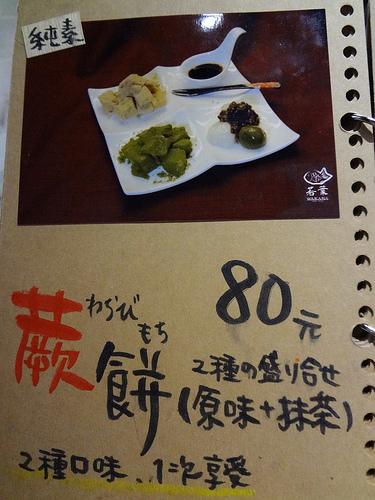 純素
若葉
WAKANA
80元
わらび
もち
蕨餅
2種の盛り合せ
(原味+抹茶)
2種口味、1次享受